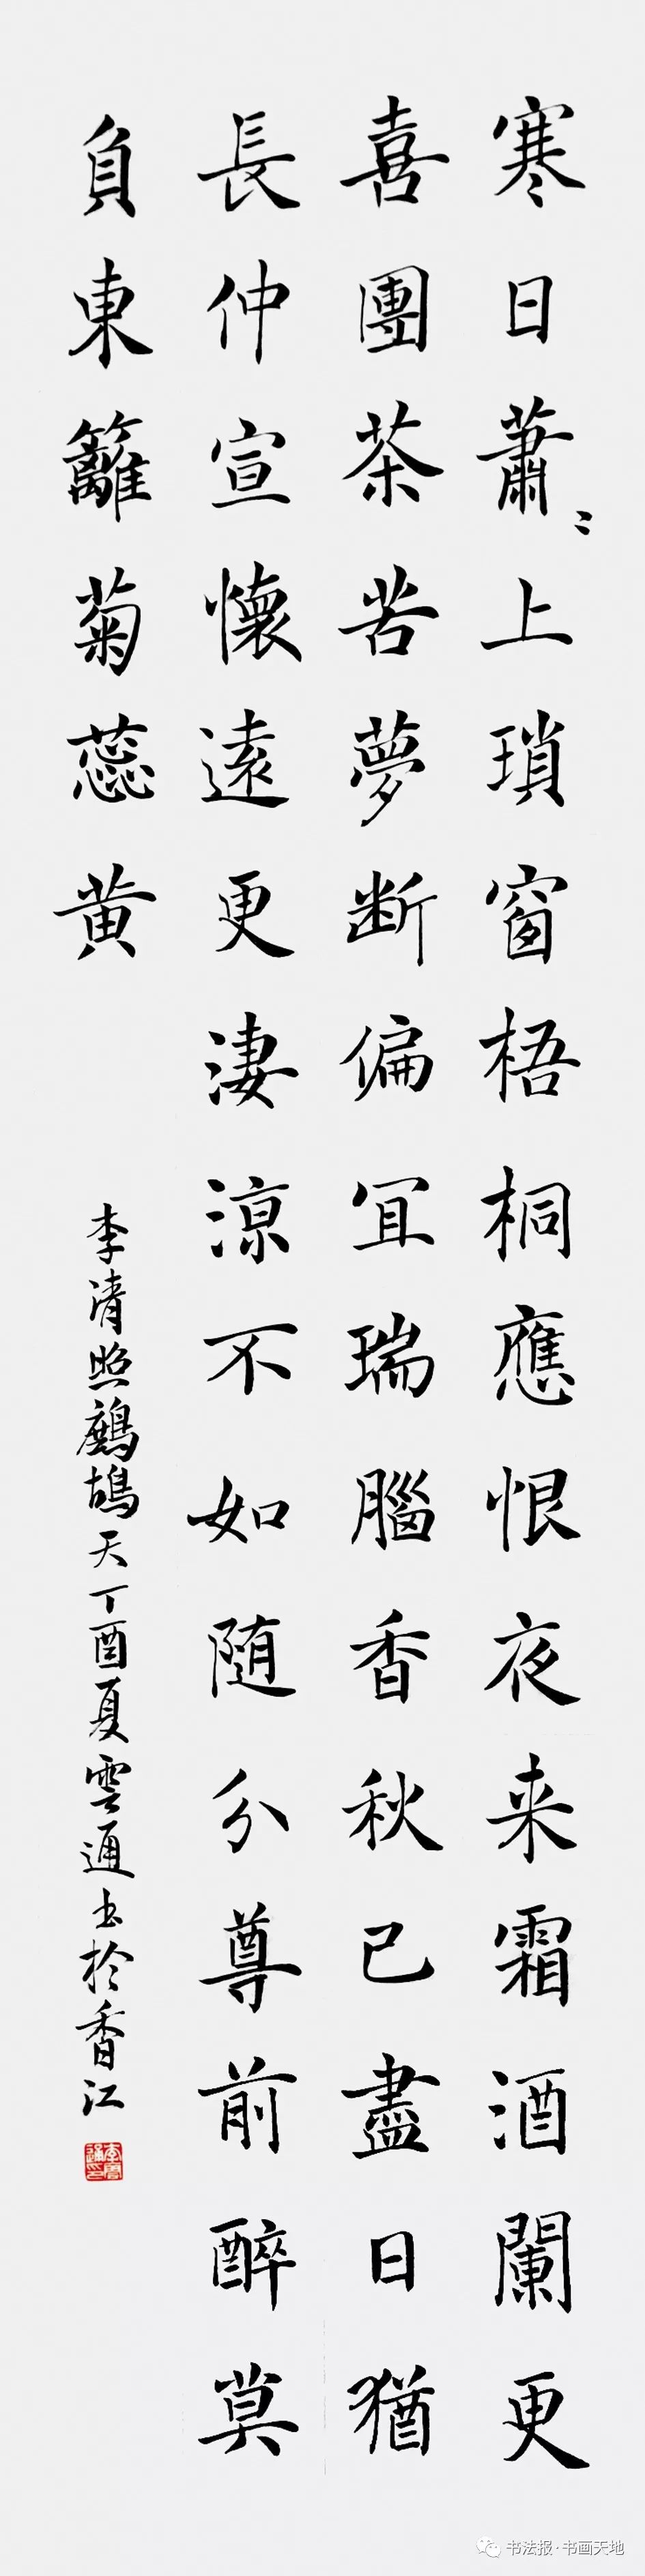 寒日蕭〻上瑣窗梧桐應恨夜来霜酒闌更
喜團茶苦夢断偏宜瑞腦香秋已盡日猶
長仲宣懷遠更淒涼不如随分尊前醉莫
負東籬菊蕊黄
李清照鷓鴣天丁酉夏雲通书於香江
李雲通印
书法报·书画天地